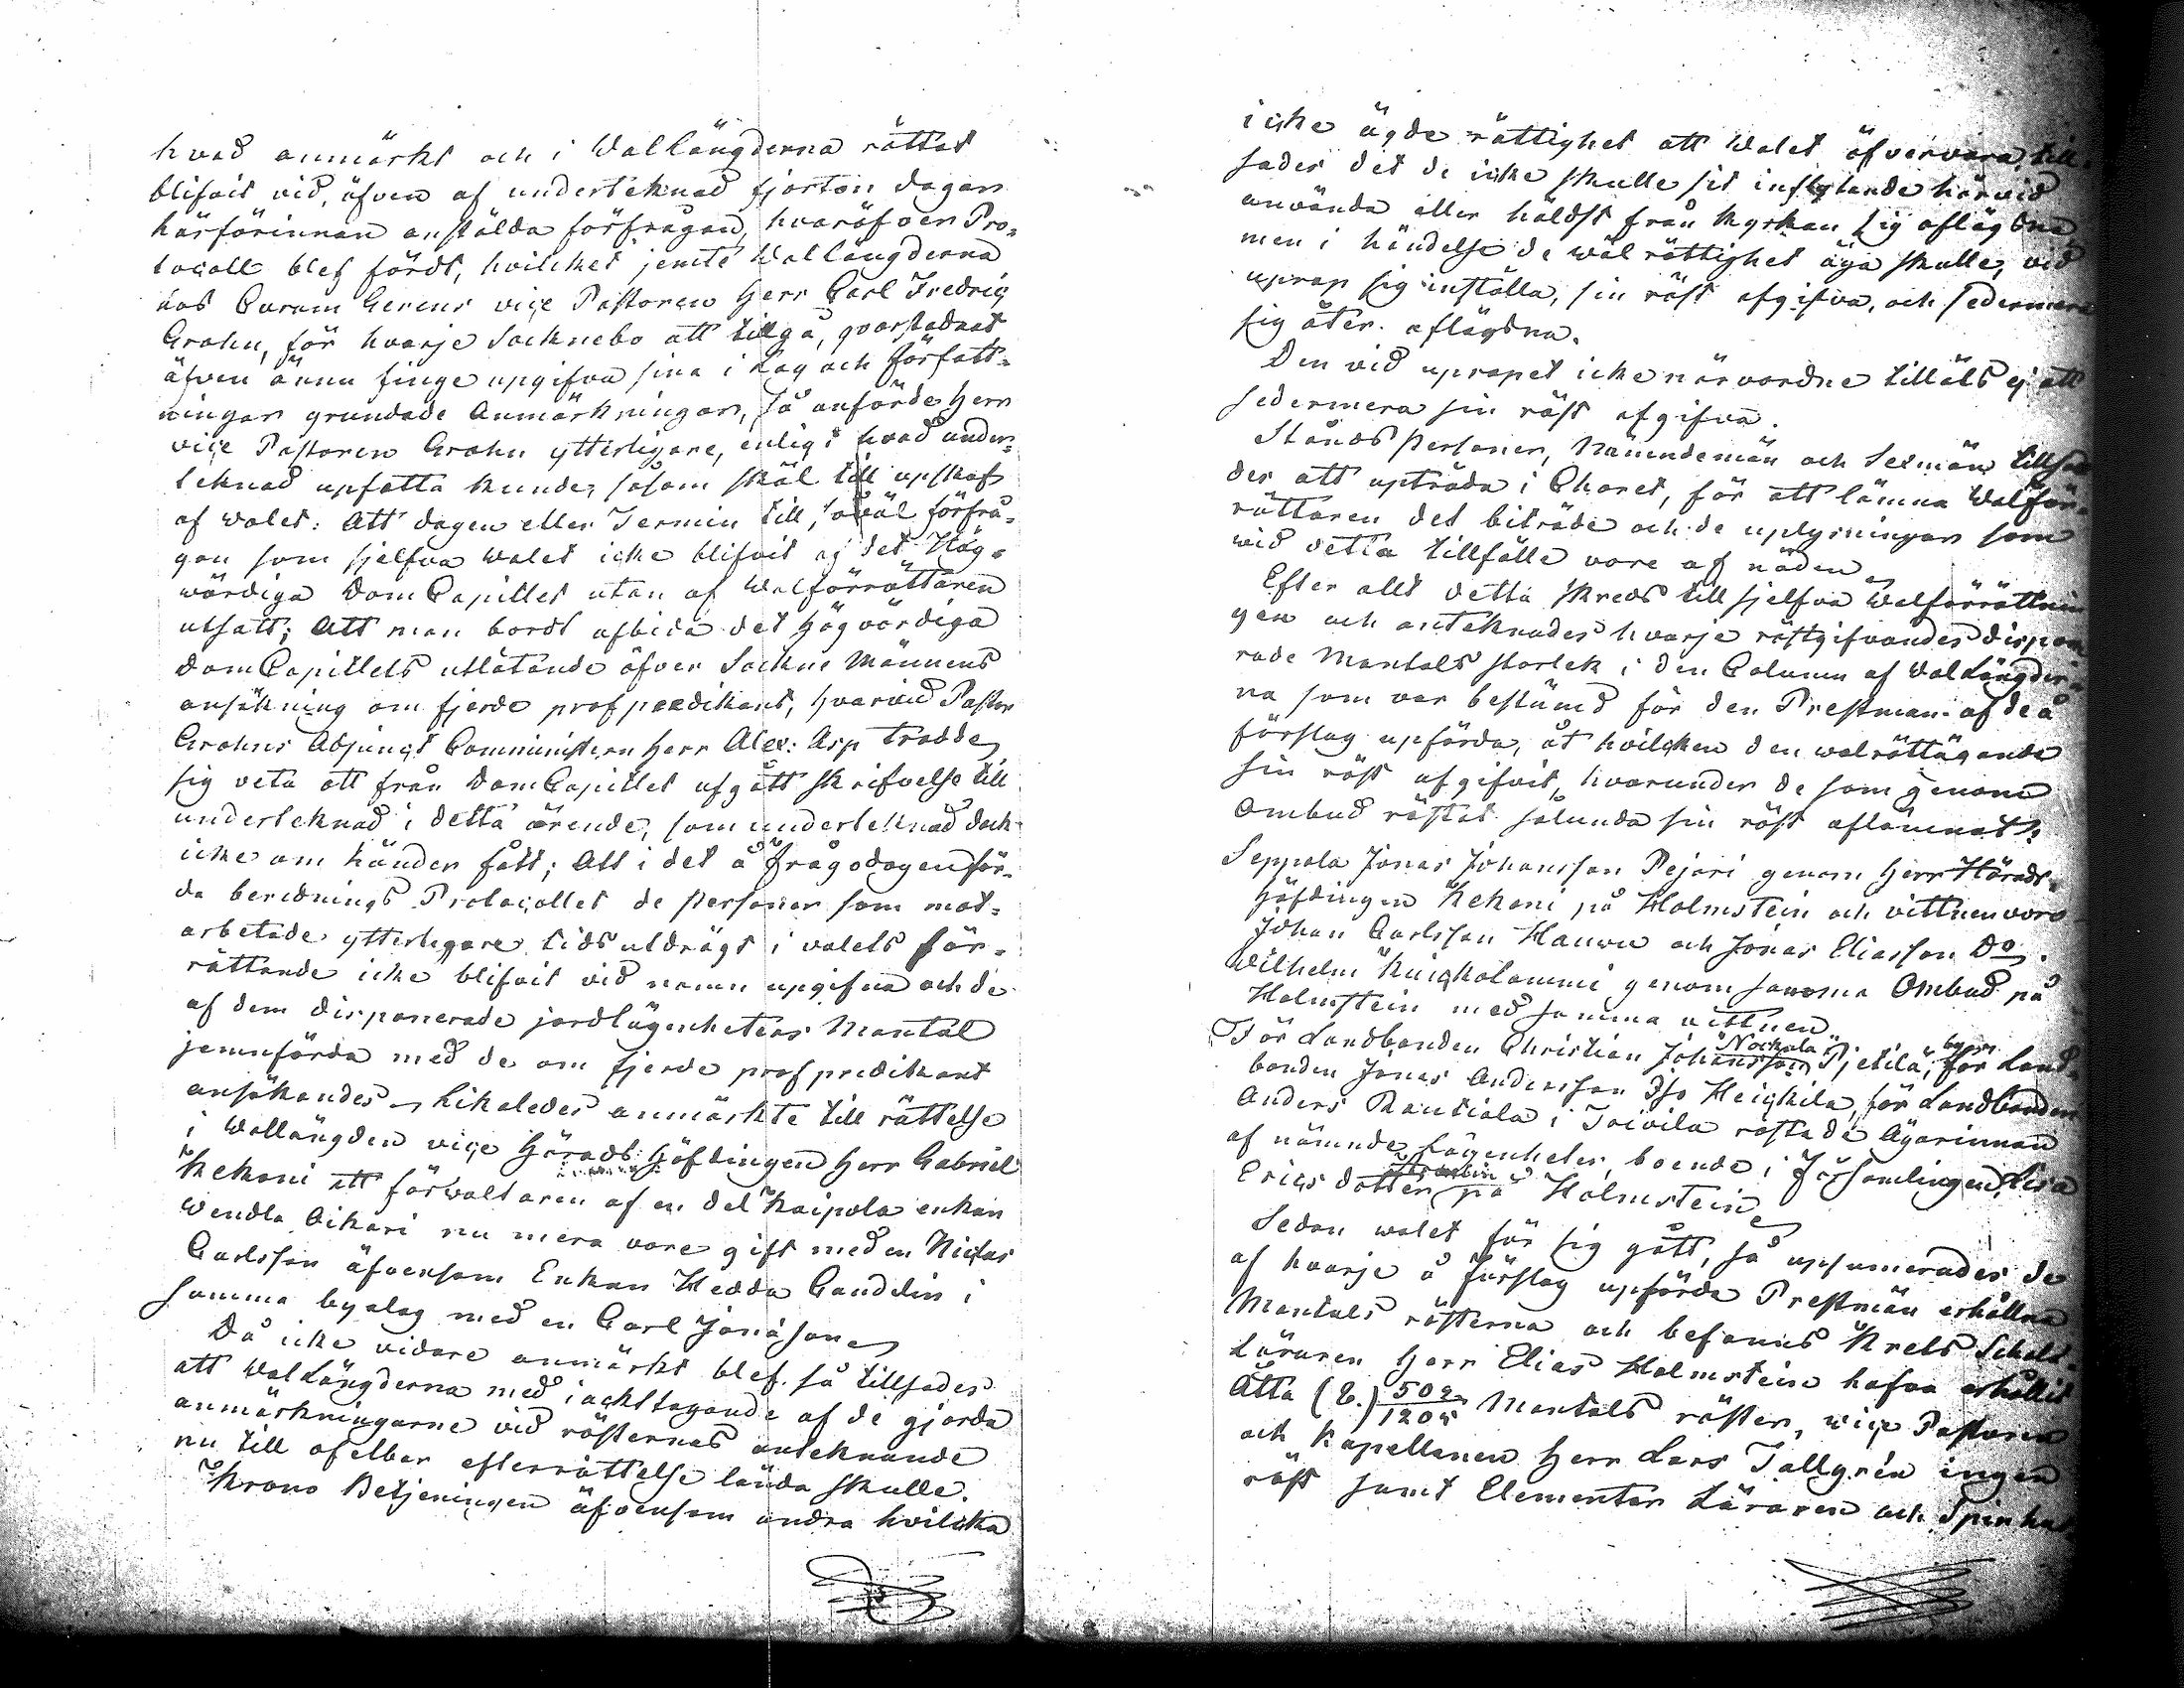 hvad anmärkt och i Wallängderna rättat
blifvit vid, äfven af undertecknad fjorton dagar
härförinnan anstälda förfrågan, hvaröfver Pro-
tocoll blef fördt, hvilcket jemte Wallängderna
hos Curam Gerens vice Pastoren Herr Carl Fredric
Grahn, för hvarje Socknebo att tillgå, qvarstadnat
äfven ännu finge upgifva sina i Lag och Författ-
ningar grundade Anmärkningar, så anförde Herr
vice Pastoren Grahn ytterligare, enligt hvad under-
teknad upfatta kunde, såsom skäl till upskof
af valet: Att dagen eller Termin till, såväl förfrå-
gan som sjelfva walet icke blifvit af det Hög-
wördiga DomCapitlet utan af Walförrättaren
utsatt; Att man bordt afbida det Högvördiga
DomCapitlets utlåtande öfver Sockne Männens
ansökning om fjerde profpredikant, hvarvid Pastor
Grahns Adjunct Comministern Herr Alex: Asp trodde
sig veta att från DomCapitlet afgått skrifvelse till
underteknad i detta ärende, som underteknad dock
icke om händer fått; Att i det å Frågodagen för-
da berednings Protocollet de personer som mot-
arbetade ytterligare tidsutdrägt i valets för-
rättande icke blifvit vid namn upgifna och de
af dem disponerade jordlägenheters Mantal
jemnförda med de om fjerde profpredikant
ansökandes. Likaledes anmärkte till rättelse
i Wallängden vice Häradshöfdingen Herr Gabriel
Kekoni att förvaltaren af en del Kaipola enkan
Wendla Oikari nu mera vore gift med en Niclas
Carlsson äfvensom Enkan Hedda Gauddin i
samma byalag med en Carl Jonasson
Då icke vidare anmärkt blef så tillsades
att WalLängderna med iackttagande af de gjorda
anmärkningarne vid rösternas antecknande
nu till ofelbar efterrättelse lända skulle.
Krono Betjeningen äfvensom andra hvilcka
icke ägde rättighet att Walet öfvervara, till-
sades det de icke skulle sit inflytande härvid
använda eller häldst från kyrkan sig aflägsna
men i händelse de wäl rättighet äga skulle, vid
uprop sig inställa, sin röst afgifva, och sedermera
sig åter aflägsna.
Den vid upropet icke närvordne tilläts ej att
sedermera sin röst afgifva.
Stånds personer, Nämndemän och Sexmän tillsa-
des att upträda i Choret, för att lämna Walför-
rättaren det biträde och de uplysningar som
wid detta tillfälle vore af nöden
Efter allt detta skreds till sjelfva Walförrättnin-
gen och antecknades hvarje röstgifvandes dispone-
rade Mantals storlek i den Column af WalLängder-
na som var bestämd för den Prestman af de å
förslag upförda, åt hvilcken den walrättägande
sin röst afgifvit, hvarunder de som genom
Ombud röstat sålunda sin röst aflämnat:
Seppola Jonas Johansson Pejari genom Herr Härads-
höfdingen Kekoni på Holmstein och vittnen voro
Johan Carlsson Hauwu och Jonas Eliasson Do.
Wilhelm Kuickolammi genom samma Ombud på
Holmstein med samma vittnen
För Landbonden Christian Johansson Nockala Pjetilä, byen för Land-
bonden Jonas Andersson Iso Heickila, för Landbonden
Anders Rautiala i Toivila röstade Ägarinnan
af nämnde Lägenheter, boende i Församlingen, Lisa
Ericsdotter på Holmstein
Sedan walet för sig gått, så upsumerades de
af hvarje å Förslag upförda Prestmän erhållna
Mantals rösterna och befanns Krets Schole-
Läraren Herr Elias Holmstein hafva erhållit
Åtta (8.) 502/1205 Mantals röster, vice Pastoren
och Kapellanen Herr Lars Tallgrén ingen
röst samt Elementar Läraren och Spinhus-